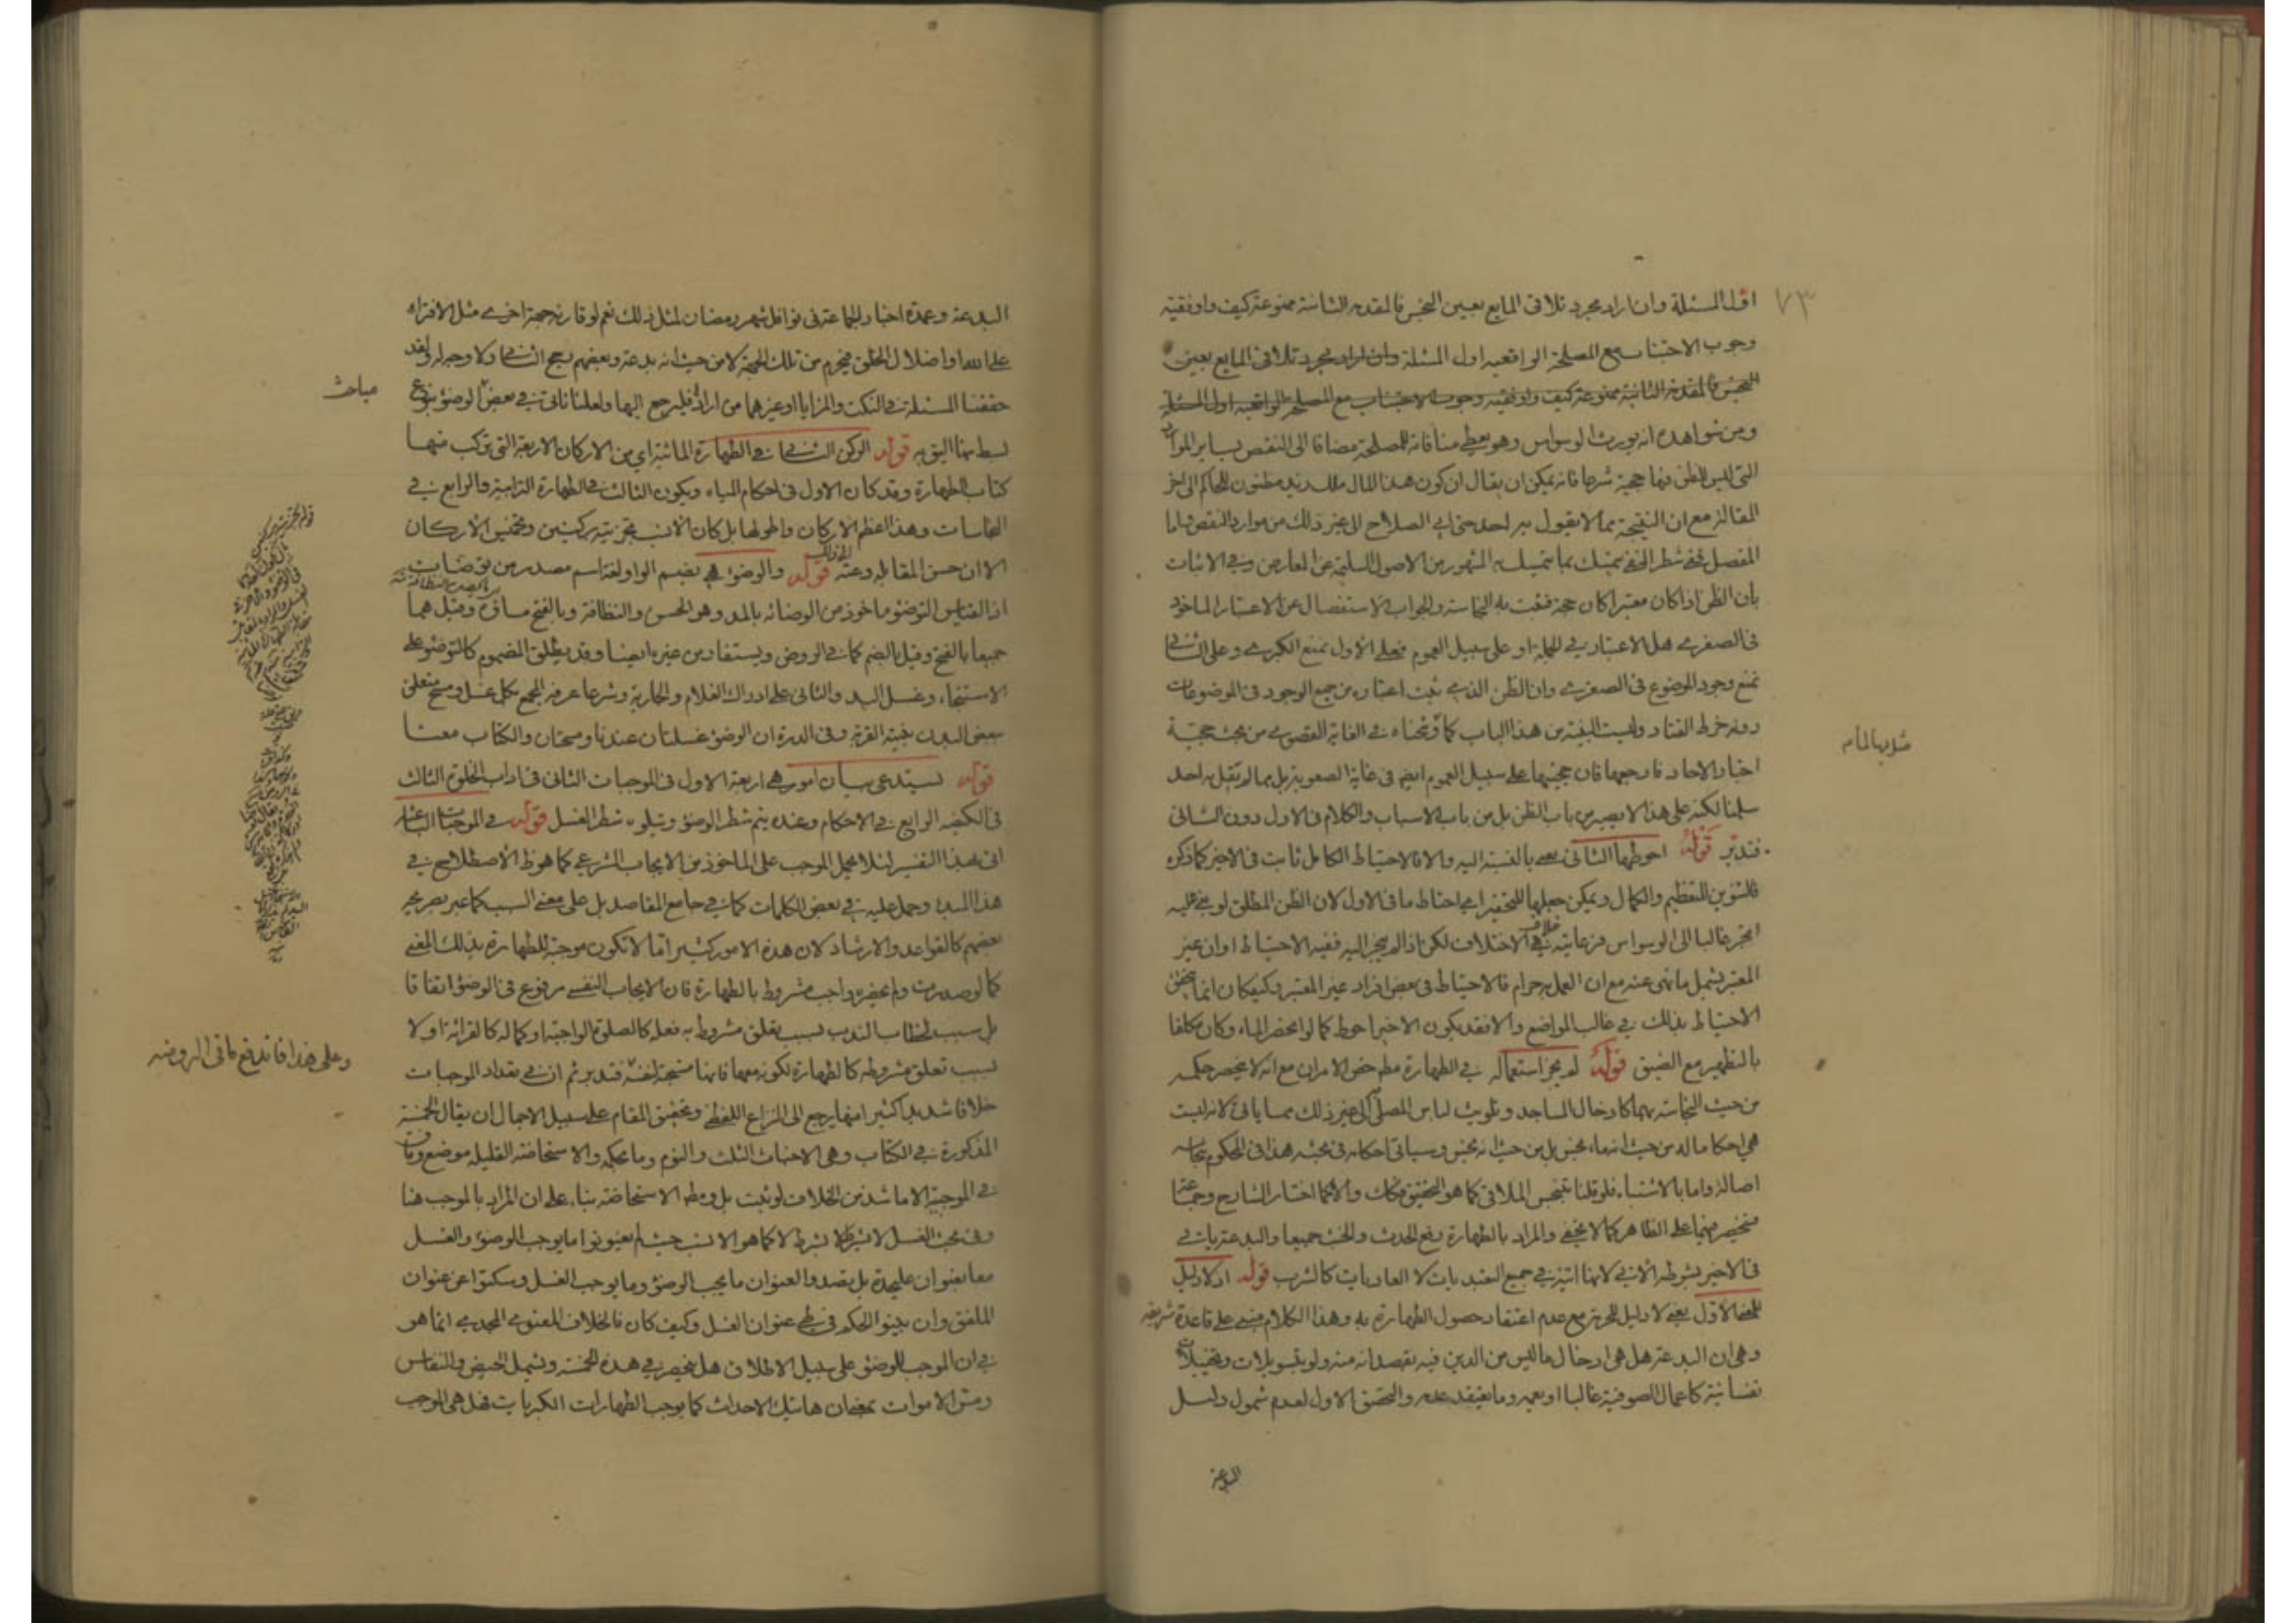 ٧٣
اول المسئلة وان اراد مجرد تلاقى المايع بعين النجس فالمقدمة الثانية ممنوعة كيف واوفقية
وجوب الاجتناب مع المصلحة الواقعيه اول المسئلة وان اراد مجرد تلاقى المايع بعين
النجس فالمقدمة الثانية ممنوعة كيف واوفقيه وجوب الاجتناب مع المصلحة الواقعيه اول المسئلة
ومن شواهده انه يورث الوسواس وهو يعطى منافاته للمصلحة مضافا الى النقض بساير الموارد
التى ليس للظن فيها حجية شرعا فانه يمكن ان يقال ان كون هذا المال ملك زيد مظنون للحاكم الى اخر
المقالة مع ان النتيجة مما لا يقول به احد حتى ابى الصلاح الى غير ذلك من موارد النقض واما
المفصل ففى شطر النفى يتمسك بما تمسك به المشهور من الاصول السليمة عن المعارض وفى الاثبات
بان الظن اذا كان معتبرا كان حجة فتثبت به النجاسة والجواب الاستفصال عن الاعتبار الماخوذ
فى الصغرى هل الاعتبار فى الجملة او على سبيل العموم فعلى الاول نمنع الكبرى وعلى الثانى
نمنع وجود الموضوع فى الصغرى وان الظن الذى ثبت اعتباره من جميع الوجوه فى الموضوعات
دونه خرط القتاد وليست البينة من هذا الباب كما وضحناه فى الغاية القصوى من بحث حجية
اخبار الاحاد فارجعها فان حجيتها على سبيل العموم ايضا فى غاية الصعوبة بل مما لم يقل به احد
سلمنا لكنه على هذا لا يصير من باب الظن بل من باب الاسباب والكلام فى الاول دون الثانى
فتدبر قوله احوطها الثانى يعنى بالنسبة اليه والا فالاحتياط الكامل ثابت فى الاخير كما ذكره
فالتنوين للتعظيم والكمال ويمكن جعلها للتحقير اى احتياط ما فى الاول لان الظن المطلق لو بنى عليه
انجر غالبا الى الوسواس فرعايته خلاف الاحتياط لكن اذا لم ينجر اليه ففيه الاحتياط اوان غير
المعتبر يشمل ما نهى عنه مع ان العمل به حرام فالاحتياط فى بعض افراد غير المعتبر وكيف كان انما يتحقق
الاحتياط بذلك فى غالب المواضع والا فقد يكون الاخير احوط كما لو انحصر الماء وكان مكلفا
بالتطهير مع الضيق قوله لم يجز استعماله فى الطهارة مطم خص الامران مع انه لا ينحصر حكمه
من حيث النجاسة بهما كادخال المساجد وتلويث لباس المصلى الى غير ذلك مما ياتى لانه ليست
هى احكاما له من حيث انه ماء نجس بل من حيث انه نجس وسياتى احكامه فى بحثه هذا فى المحكوم بنجاسته
اصالة واما بالاشتباه فلو قلنا بتنجس الملاقى كما هو التحقيق فكك والا كما اختار الشارح وجماعة
فتخصيصهما على الظاهر كما لا يخفى والمراد بالطهارة رفع الحدث والخبث جميعا والبدعة ياتى
فى الاخير بشرطه الاتى لانها اتية فى جميع التعبديات لا العاديات كالشرب قوله اذ لا دليل
للمعنى الاول يعنى لا دليل للحرمة مع عدم اعتقاد حصول الطهارة به وهذا الكلام مبنى على قاعدة شريفة
وهى ان البدعة هل هى ادخال ما ليس من الدين فيه بقصد انه منه ولو بتسويلات وتخييلات
نفسانية كاعمال الصوفية غالبا او يعمه وما يعتقد عدمه والتحقيق الاول لعدم شمول دليل
البدعة
البدعة وعمدة اخبار الجماعة فى نوافل شهر رمضان لمثل ذلك نعم لو قارنه جهة اخرى مثل الافتراء
على الله او اضلال الخلق فيحرم من تلك الجهة لا من حيث انه بدعة وبعضهم رجح الثانى ولا وجه له ولقد
حققنا المسئلة فى النكت والمزايا او غيرهما من اراد فليرجع اليها ولعلنا ناتى فى بعض مباحث الوضوء بنوع
بسط بها اليق به قوله الركن الثانى فى الطهارة المائية اى من الاركان الاربعة التى تركب منها
كتاب الطهارة وقد كان الاول فى احكام المياه ويكون الثالث فى الطهارة الترابية والرابع فى
النجاسات وهذا اعظم الاركان واطولها بل كان الانسب تجزيته بركنين وتخميس الاركان
الا ان حسن المقابلة دعته الى ذلك قوله والوضوء هى بضم الواو لغة اسم مصدر من توضات
اذ القياس التوضؤ ماخوذ من الوضائة بالمد وهو الحسن والنظافة وبالفتح ماؤه وقيل هما
جميعا بالفتح وقيل بالضم كما فى الروض ويستفاد من غيره ايضا وقد يطلق المضموم كالتوضؤ على
الاستنجاء وغسل اليد والثانى على ادراك الغلام والجارية وشرعا عرفه المجمع بكل غسل ومسح متعلق
ببعض البدن بنية القربة وفى الدرة ان الوضوء غسلتان عندنا ومسحتان والكتاب معنا
قوله يستدعى بيان امور هى اربعة الاول فى الموجبات الثانى فى اداب الخلوة الثالث
فى الكيفيه الرابع فى الاحكام وعنده يتم شطر الوضوء ويتلوه شطر الغسل قوله فى الموجبات الباعثة
اتى بهذا التفسير لئلا يحمل الموجب على الماخوذ من الايجاب الشرعى كما هو ظ الاصطلاح فى
هذا المبدء وحمل عليه فى بعض الكلمات كما فى جامع المقاصد بل على معنى السبب كما عبر به صريحا
بعضهم كالقواعد والارشاد لان هذه الامور كثيرا ما لا تكون موجبة للطهارة بذلك المعنى
كما لو صدرت ولم يحضره واجب مشروط بالطهارة فان الايجاب النفسى مرفوع فى الوضوء اتفاقا
بل سبب لخطاب الندب بسبب تعلق مشروط به فعله كالصلوة الواجبة او كماله كالقرائة او لا
بسبب تعلق مشروطه كالطهارة لكونه معها فانها مستحبة لنفسه فتدبر ثم ان فى تعداد الموجبات
خلافا شديدا كثير امنها يرجع الى النزاع اللفظى وتحقيق المقام على سبيل الاجمال ان يقال الخمسة
المذكورة فى الكتاب وهى الاحداث الثلث والنوم وما بحكمه والاستحاضة القليله موضع وفاق
فى الموجبية الا ما شذ من الخلاف لو ثبت بل ومطم الاستحاضة بناء على ان المراد بالموجب هنا
وفى بحث الغسل لا بشرط لا بشرط لا كما هو الانسب حيث لم يعنونوا ما يوجب الوضوء والغسل
معا بعنوان عليحدة بل بصدد العنوان ما يجب الوضوء وما يوجب الغسل وسكتوا عن عنوان
الملفق وان بينوا الحكم فى طى عنوان الغسل وكيف كان فالخلاف المعنوى المجدى انما هو
فى ان الموجب للوضوء على سبيل الاطلاق هل ينحصر فى هذه الخمسة ويشمل الحيض والنفاس
ومس الاموات بمعنى ان هاتيك الاحداث كما يوجب الطهارات الكبريات فهل هى الموجب
مباحث
وعلى هذا فاندفع ما فى الروضه